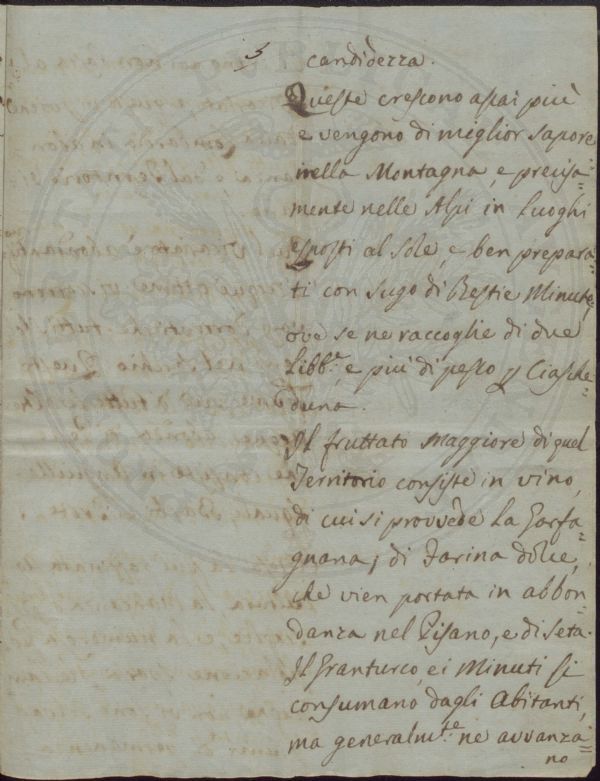 3 candidezza.
Queste crescono assai più
e vengono di miglior sapore
nella Montagna, e precisa=
mente nelle Alpi in luoghi
esposti al sole, e ben prepara=
ti con sugo di Bestie Minute,
ove se ne raccoglie di due
Libb.e, e più di peso p Ciasche=
duna.
Il fruttato maggiore di quel
Territorio consiste in vino,
di cui si provvede la Garfa=
gnana; di Farina dolce,
che vien portata in abbon=
danza nel Pisano, e di Seta.
Il Granturco, e i Minuti si
consumano dagli Abitanti,
ma generalm.te ne avvanza=
no